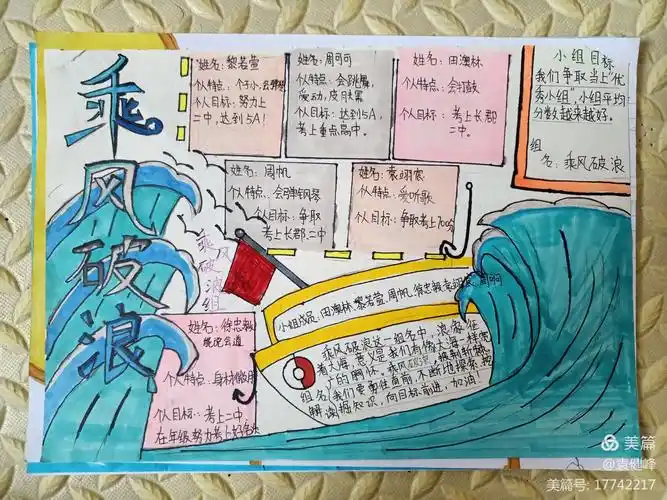 乘风破浪
姓名:黎若萱
个人特点:个子小,
个人目标:努力上
二中,达到5A!
姓名:周可可
个人特点:会跳舞,
爱动,皮肤黑
个人目标:达到5A,
考上重点高中。
姓名:田澳林
个人特点:会打鼓
个人目标:考上长郡
二中。
小组目标
我们争取当上"优
秀小组",小组平均
分数越来越好。
组
名:乘风破浪
姓名:周帆
个人特点:会弹钢琴
个人目标:争取
考上长郡二中
姓名:袁翊宸
个人特点:爱听歌
个人目标:争取考上700分
乘风破浪组
小组成员:田澳林.黎若萱.周帆.徐忠毅.袁翊宸.周可可
姓名:徐忠毅
能说会道
个人特点:身材
个人目标:考上二中,
在年级努力考上好名次
组名解读
乘风破浪这一组名中,浪象征
着大海,意义是我们有像大海一样宽
广的胸怀,乘风
我们要勇往直前,不断地探索,挖
掘知识,向目标前进,加油!
美篇
@袁继峰
美篇号: 17742217